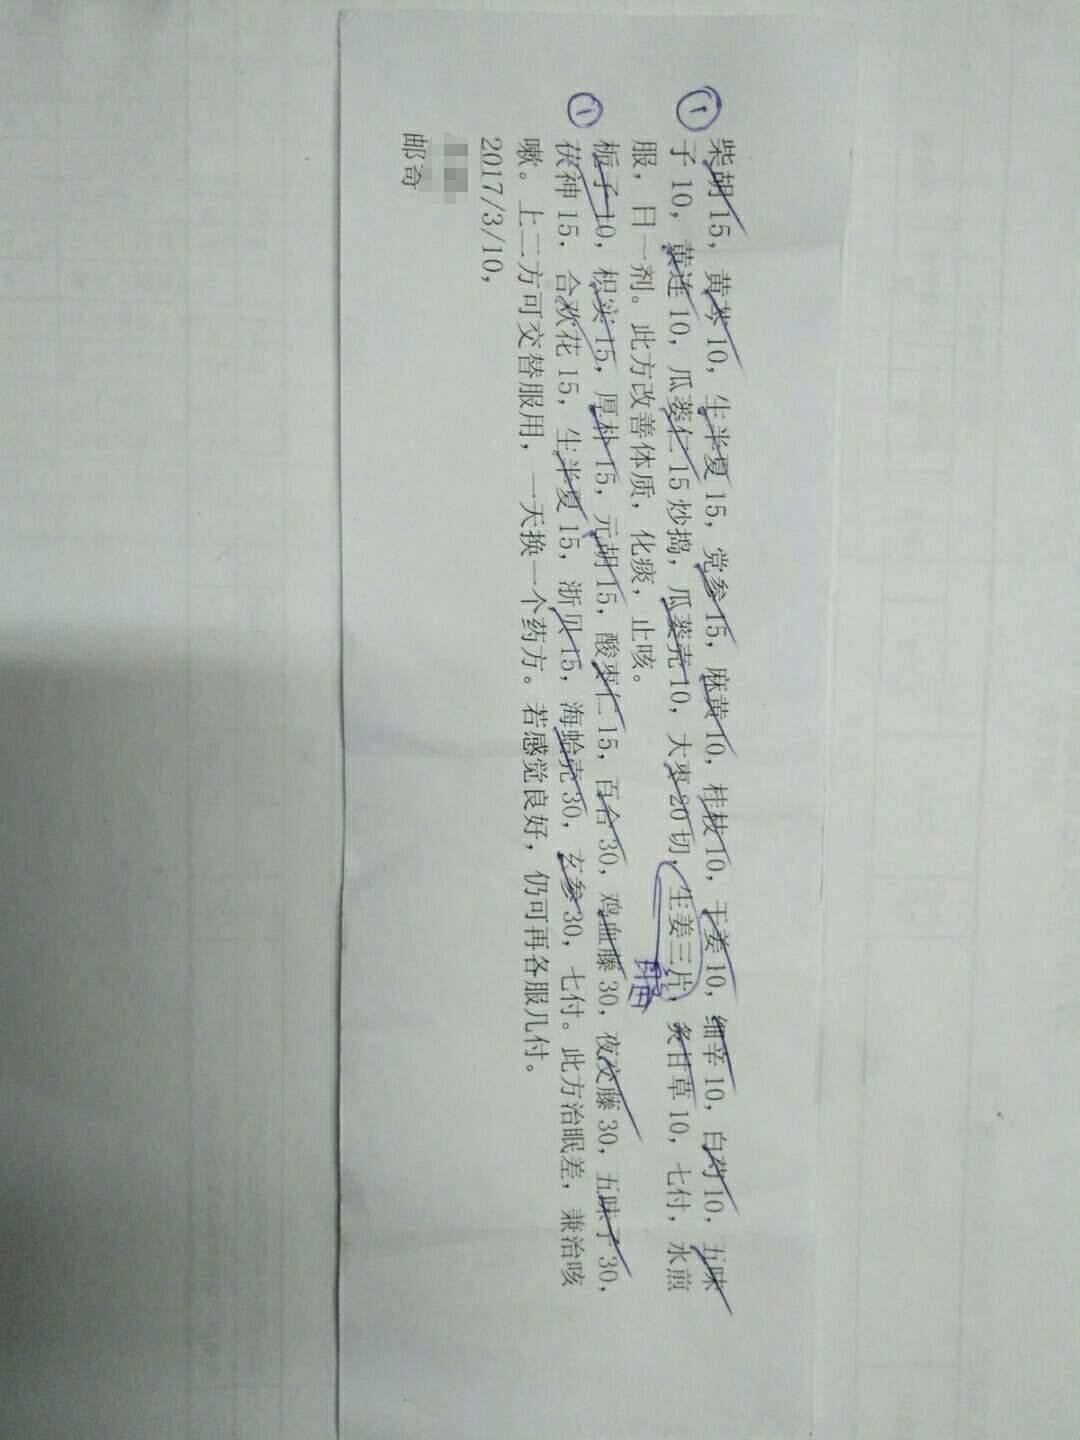 ①
柴胡 15，黄芩 10，生半夏 15，党参 15，麻黄 10，桂枝 10，干姜 10，细辛 10，白芍 10，五味
子 10，黄连 10，瓜蒌仁 15 炒捣，瓜蒌壳 10，大枣 20 切，生姜三片，炙甘草 10，七付，水煎
服，日一剂。此方改善体质，化痰，止咳。
自备
①
栀子 10，枳实 15，厚朴 15，元胡 15，酸枣仁 15，百合 30，鸡血藤 30，夜交藤 30，五味子 30，
茯神 15，合欢花 15，生半夏 15，浙贝 15，海蛤壳 30，玄参 30，七付。此方治眠差，兼治咳
嗽。上二方可交替服用，一天换一个药方。若感觉良好，仍可再各服几付。
2017/3/10，
邮寄